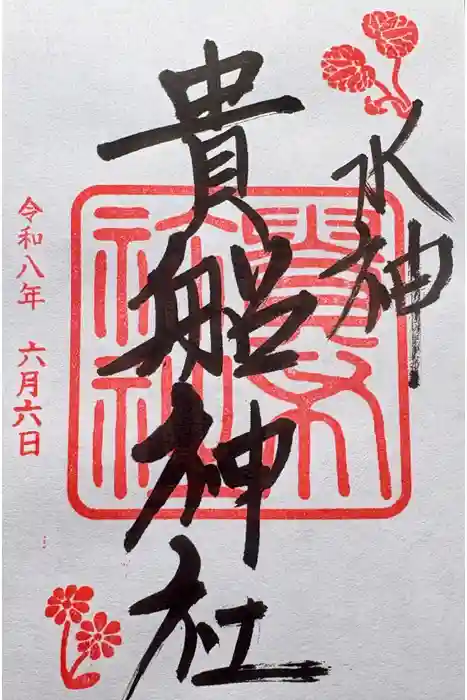 水神
貴船神社
令和八年 六月六日